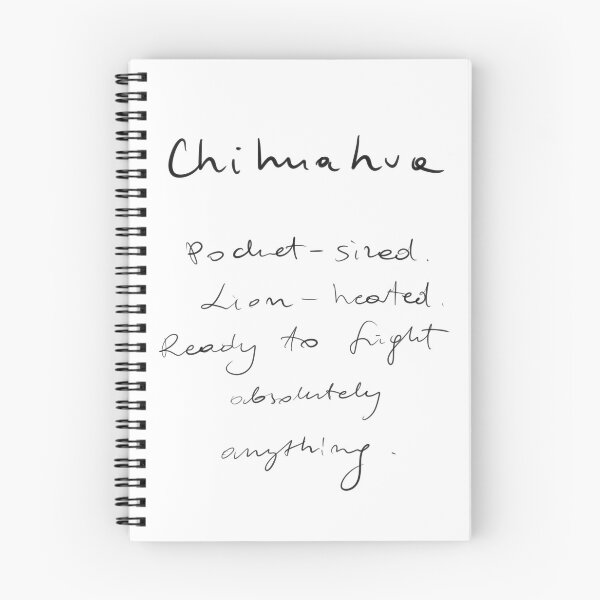 Chihuahua
Pocket-sized.
Lion-heated.
Ready to fight
absolutely
anything.